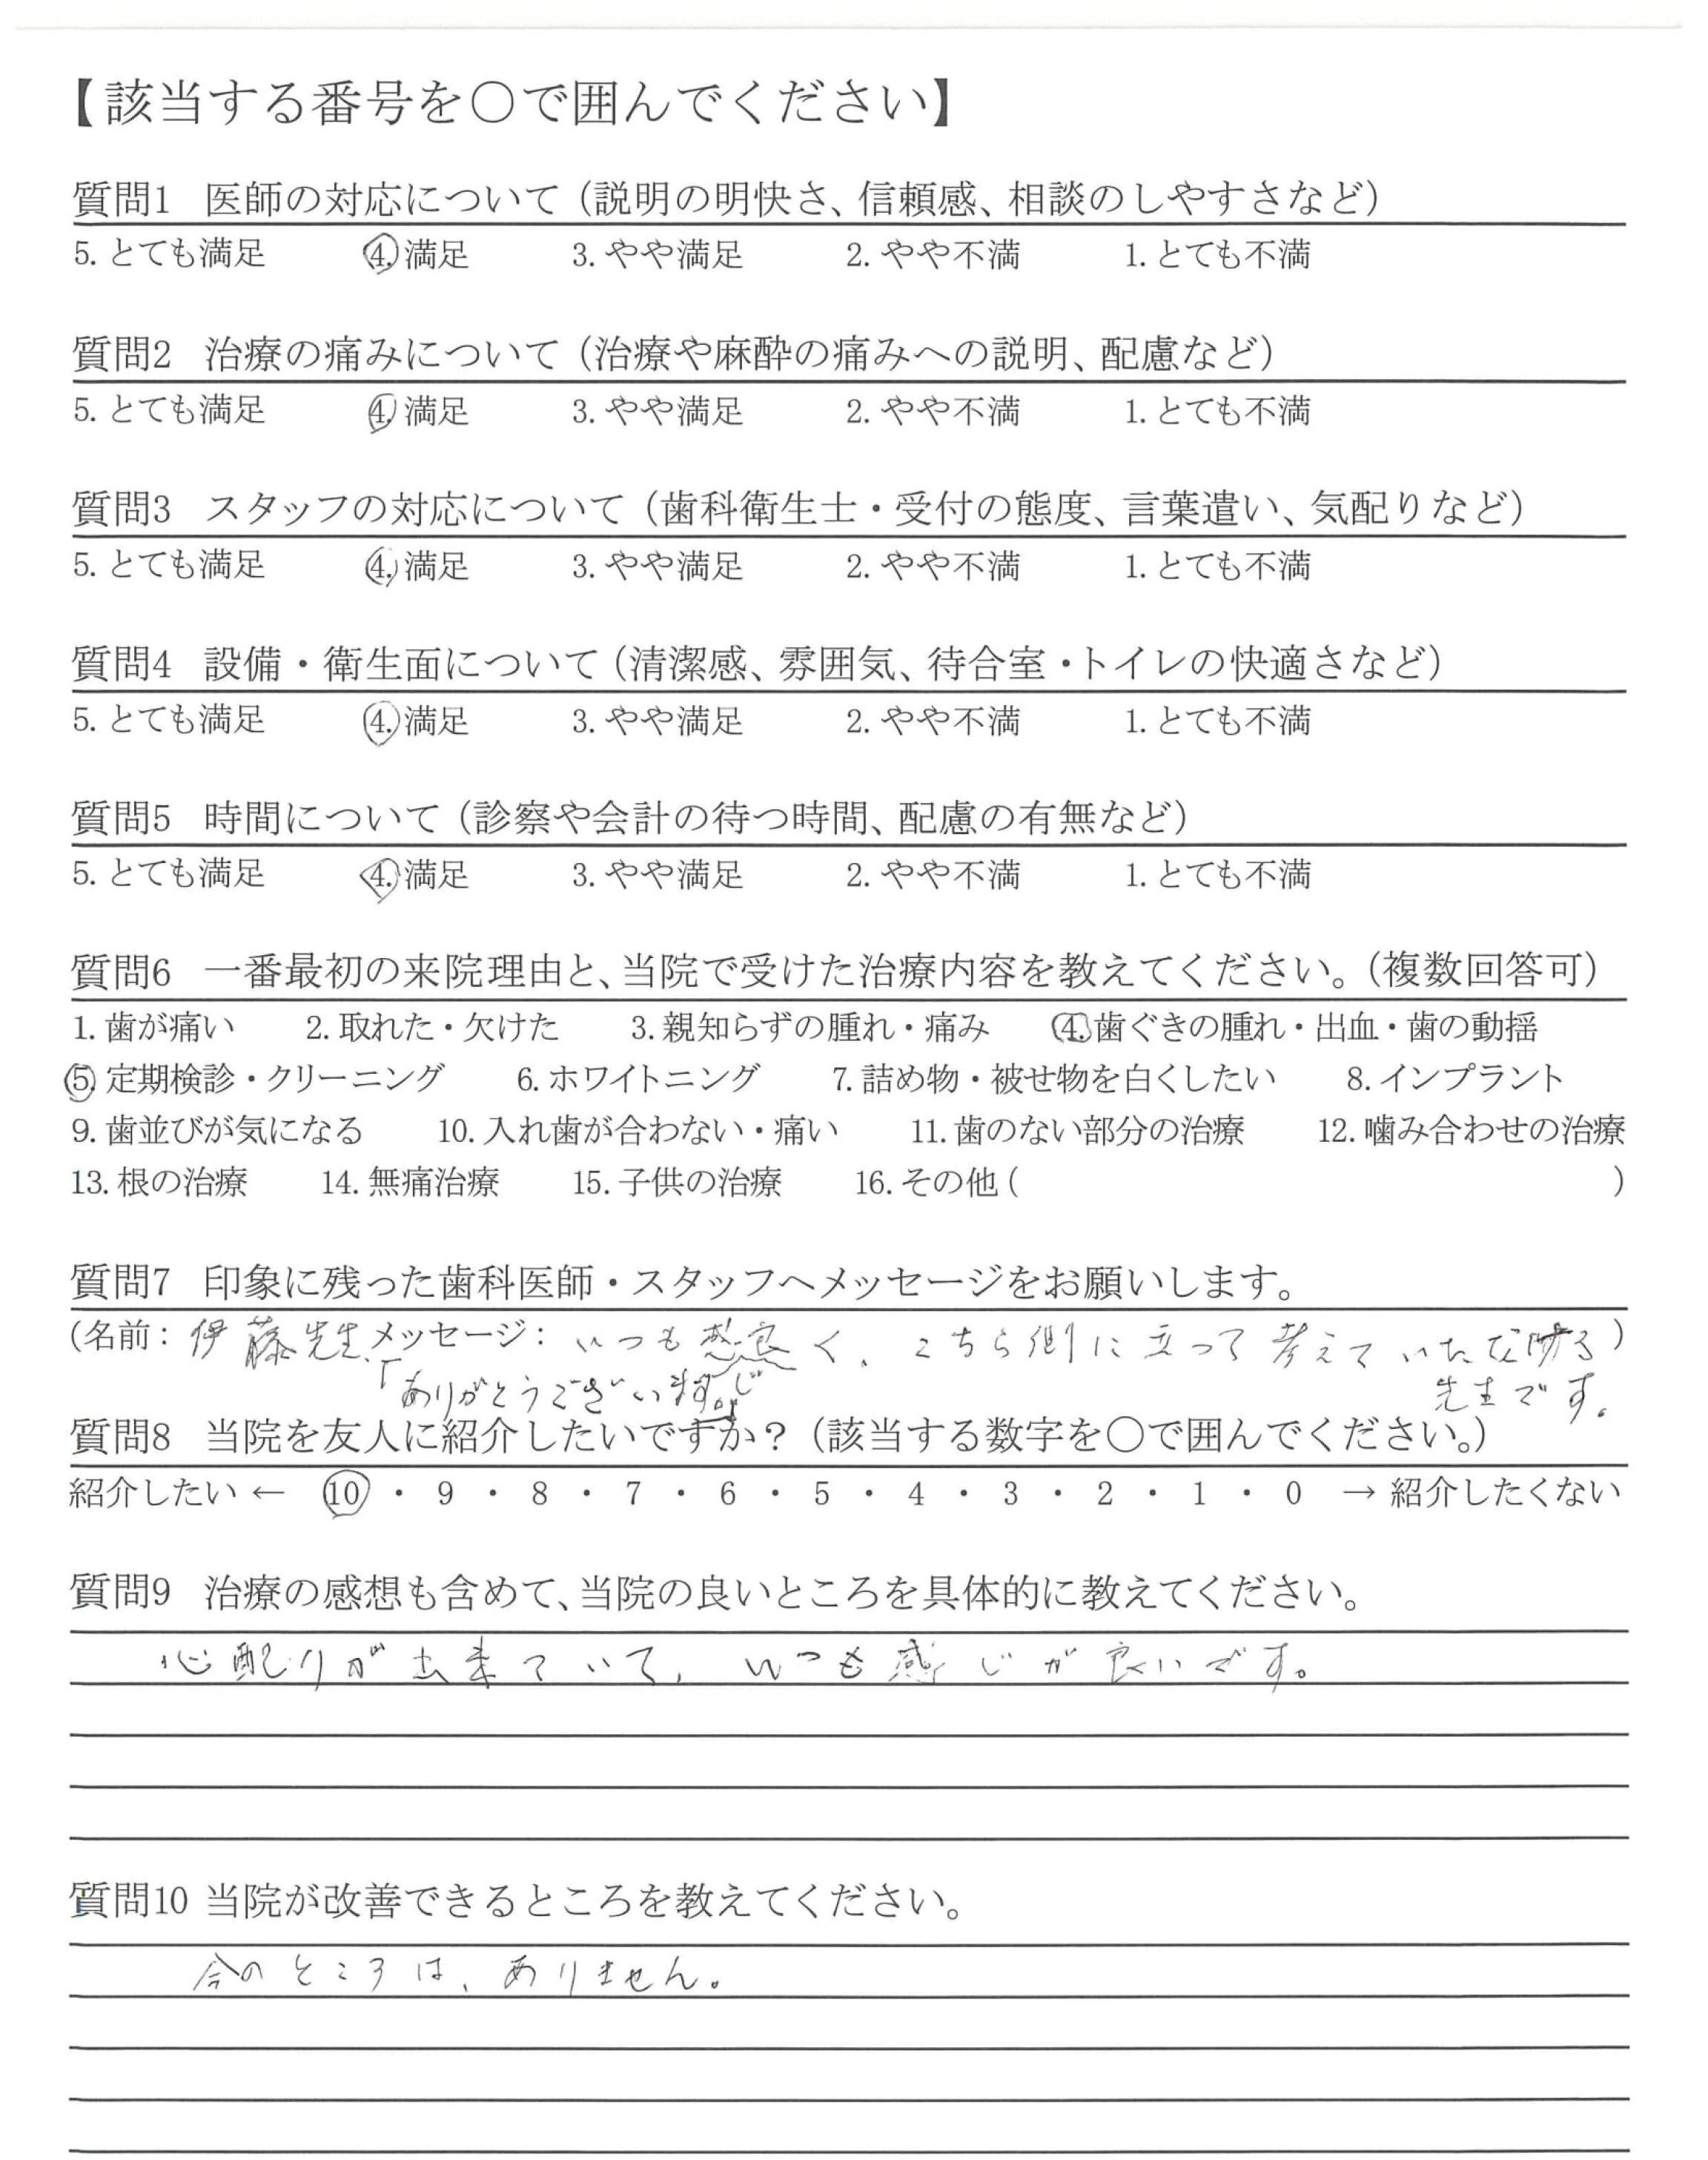 【該当する番号を○で囲んでください】
質問1 医師の対応について（説明の明快さ、信頼感、相談のしやすさなど）
5. とても満足 4. 満足 3. やや満足 2. やや不満 1. とても不満
質問2 治療の痛みについて（治療や麻酔の痛みへの説明、配慮など）
5. とても満足 4. 満足 3. やや満足 2. やや不満 1. とても不満
質問3 スタッフの対応について（歯科衛生士・受付の態度、言葉遣い、気配りなど）
5. とても満足 4. 満足 3. やや満足 2. やや不満 1. とても不満
質問4 設備・衛生面について（清潔感、雰囲気、待合室・トイレの快適さなど）
5. とても満足 4. 満足 3. やや満足 2. やや不満 1. とても不満
質問5 時間について（診察や会計の待つ時間、配慮の有無など）
5. とても満足 4. 満足 3. やや満足 2. やや不満 1. とても不満
質問6 一番最初の来院理由と、当院で受けた治療内容を教えてください。（複数回答可）
1. 歯が痛い 2. 取れた・欠けた 3. 親知らずの腫れ・痛み 4. 歯ぐきの腫れ・出血・歯の動揺
5. 定期検診・クリーニング 6. ホワイトニング 7. 詰め物・被せ物を白くしたい 8. インプラント
9. 歯並びが気になる 10. 入れ歯が合わない・痛い 11. 歯のない部分の治療 12. 噛み合わせの治療
13. 根の治療 14. 無痛治療 15. 子供の治療 16. その他 ( )
質問7 印象に残った歯科医師・スタッフへメッセージをお願いします。
（名前：伊藤先生 メッセージ：いつも感じ良く、こちら側に立って考えていただける）
「ありがとうございます。」 先生です。
質問8 当院を友人に紹介したいですか？（該当する数字を○で囲んでください。）
紹介したい ← 10 ・ 9 ・ 8 ・ 7 ・ 6 ・ 5 ・ 4 ・ 3 ・ 2 ・ 1 ・ 0 → 紹介したくない
質問9 治療の感想も含めて、当院の良いところを具体的に教えてください。
心配りが出来ていて、いつも感じが良いです。
質問10 当院が改善できるところを教えてください。
今のところは、ありません。